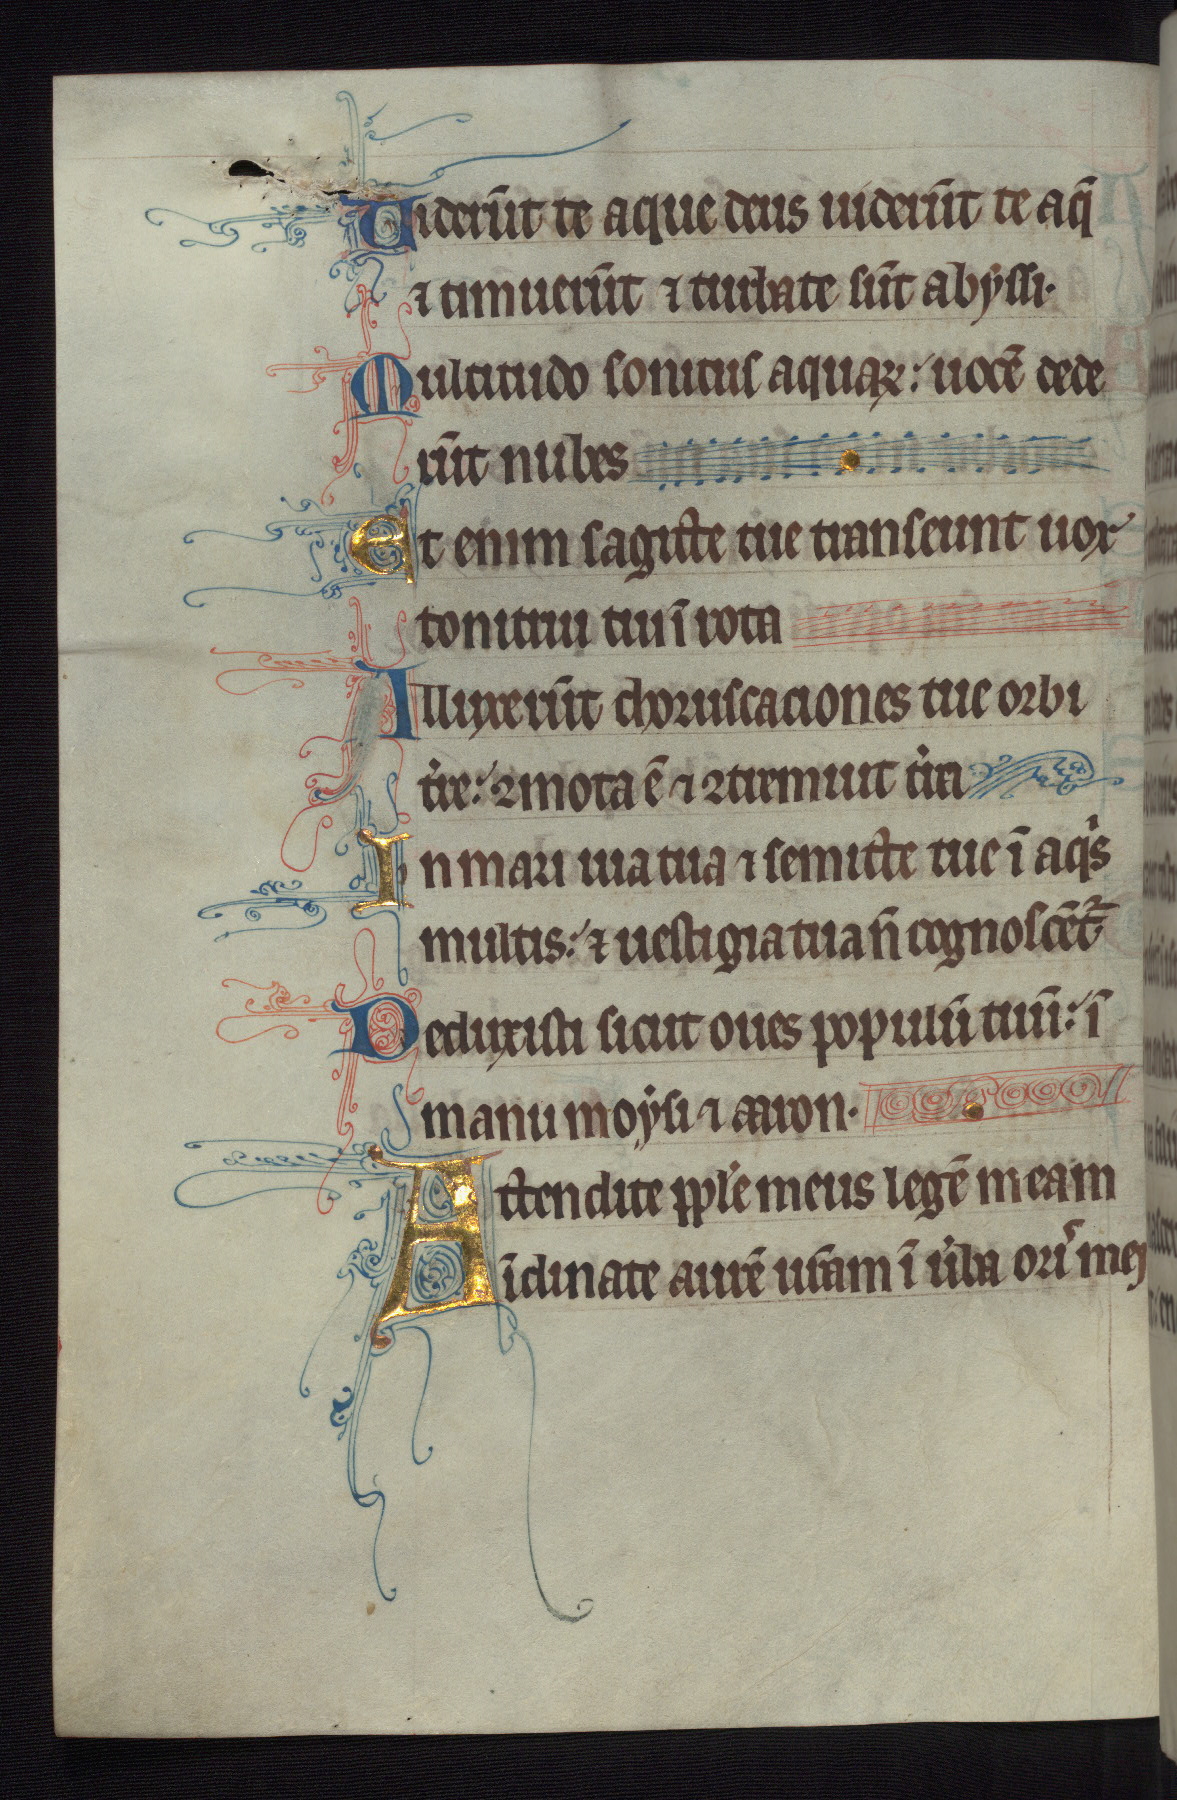 Uiderūt te aque deus uiderūt te aq̄
⁊ timuerūt ⁊ turbate sūt abẏssi.
Multitudo sonitus aquaꝝ: uocē dede
rūt nubes
Et enim sagitte tue transeunt uox
tonitrui tui ī rota
Illuxerūt choruscaciones tue orbi
t̓re: ꝯmota ē ⁊ ꝯtremuit t̓ra
In mari uia tua ⁊ semitte tue ī aq̓s
multis: ⁊ uestigia tua n̄ cognoscēt᷑
Deduxisti sicut oues populū tuū: ī
manu moẏsi ⁊ aaron.
Attendite pp̄le meus legē meam
īclinate aurē ur̄am ī u̓ba ori᷒ mei